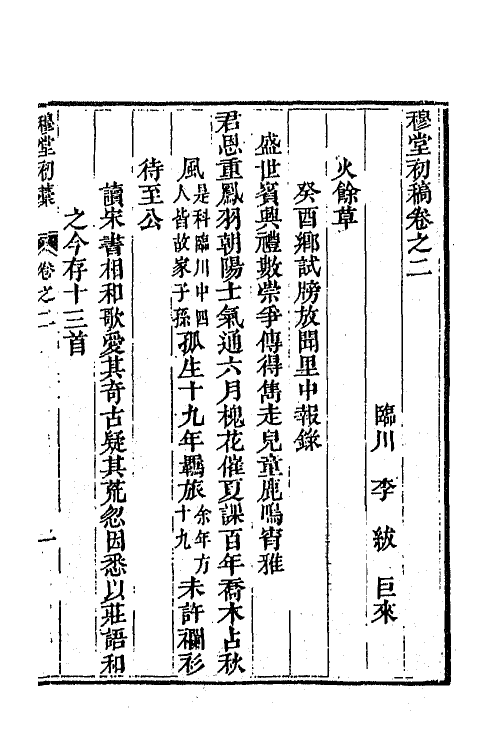 穆堂初稿卷之二
臨川 李 紱 巨來
火餘草
癸酉鄉試牓放聞里中報錄
盛世賓興禮數崇爭傳得雋走兒童鹿鳴宵雅
君恩重鳳羽朝陽士氣通六月槐花催夏課百年喬木占秋
風是科臨川中四人皆故家子孫孤生十九年羈旅余年方十九未許襴衫
待至公
讀宋書相和歌愛其奇古疑其荒忽因悉以莊語和
之今存十三首
穆堂初藁 卷之二 一